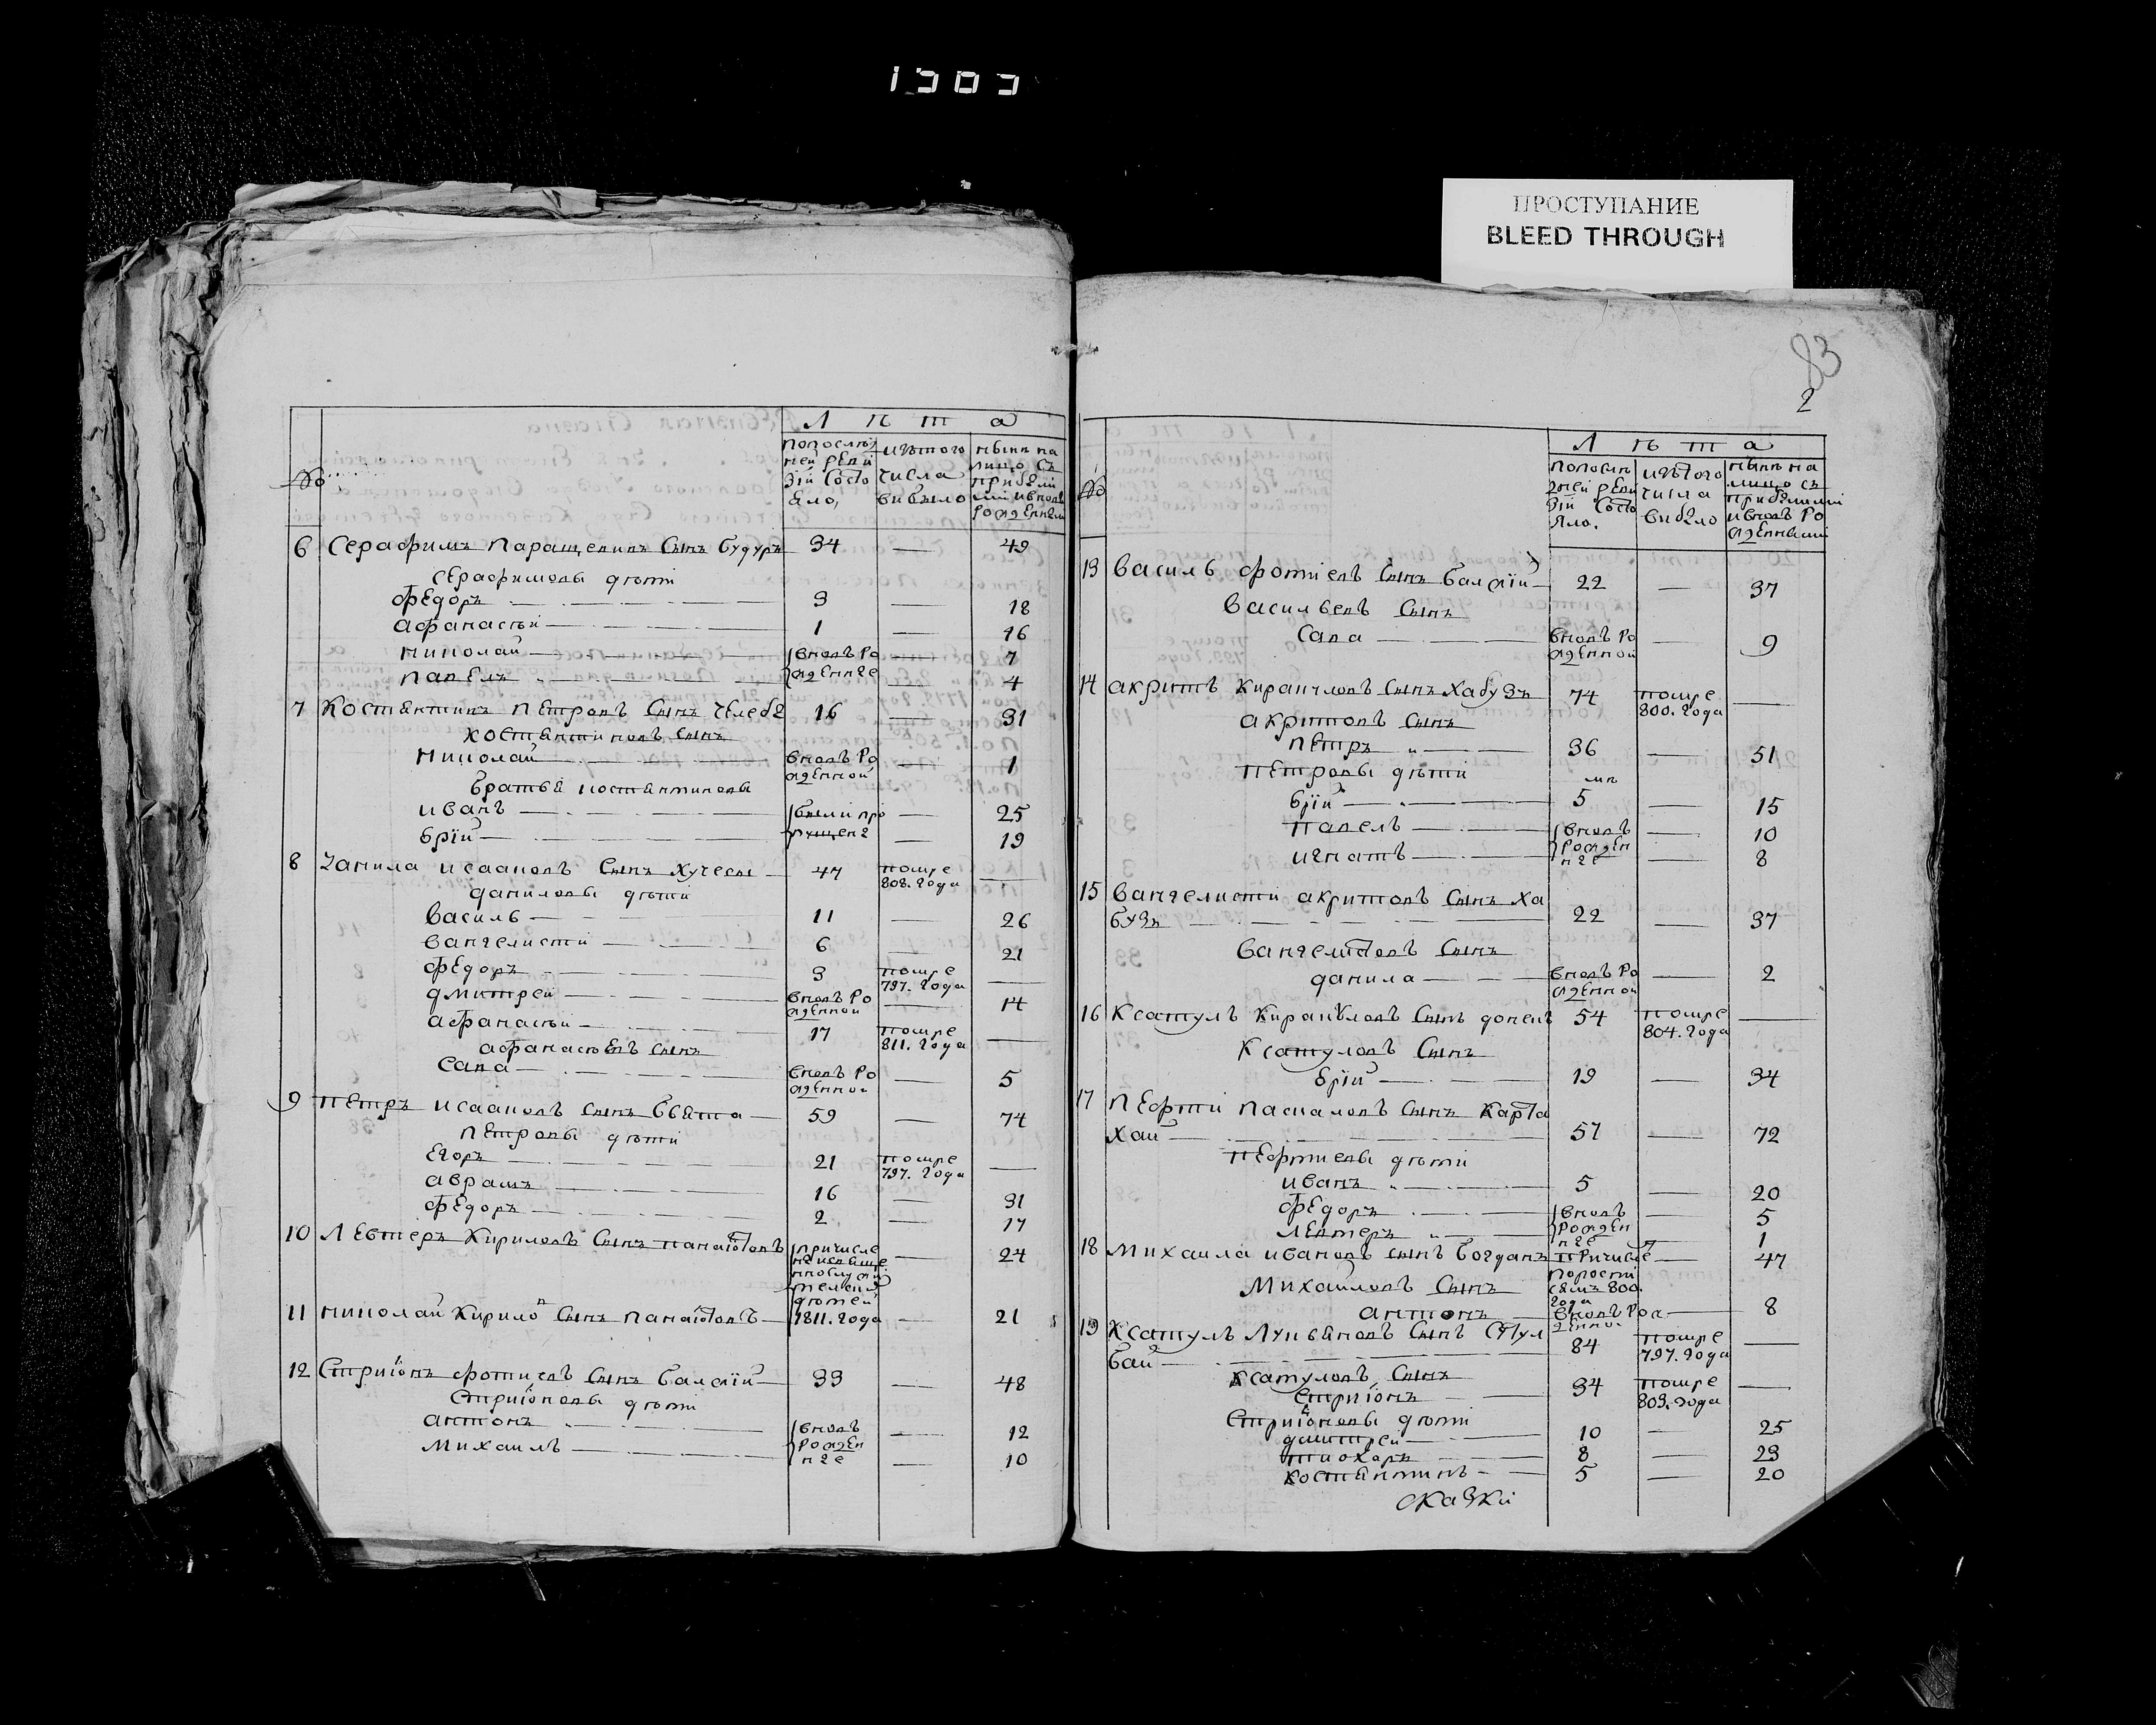 1303
ПРОСТУПАНИЕ
BLEED THROUGH
83
2
№
Лѣта
попослѣдней ревизіи состояло,
изътого числа выбыло
нынѣ на лицо съ прибылыми и вновь рожденными
6 Серафимъ Паращевинъ сынъ Будуръ 34 — 49
Серафимовы дѣти
Федоръ — 3 — 18
Афанасѣй — 1 — 16
Николай — вновь ро — 7
Павелъ — жденные — 4
7 Костянтинъ Петровъ сынъ Челебы 16 — 31
Костянтиновъ сынъ
Николай — вновь рожденной — 1
Братья Костянтиновы
Иванъ — были про — 25
Юрій — пущены — 19
8 Данила Исааковъ сынъ Хучесы — 47 помре 808. года —
Даниловы дѣти
Василь — 11 — 26
Вангелисти — 6 — 21
Федоръ — 3 помре 797. года —
Дмитрей — вновь рожденной — 14
Афанасѣй — 17 помре 811. года —
Афанасѣевъ сынъ
Сава — вновь рожденной — 5
9 Петръ Исааковъ сынъ — 59 — 74
Петровы дѣти
Егоръ — 21 помре 797. года —
Аврамъ — 16 — 31
Федоръ — 2 — 17
10 Левтеръ Кириловъ сынъ Панаіотовъ причисле — 24
дѣтей
11 Николай Кирило сынъ Панаіотовъ — 1811. года — 21
12 Стригіонъ Фотиевъ сынъ Балжій — 33 — 48
Стригіоновы дѣти
Антонъ — вновь — 12
Михаилъ — рожденные — 10
№
Лѣта
попослѣдней ревизіи состояло.
изътого числа выбыло
нынѣ на лицо съ прибылыми и вновь рожденными
13 Василь Фотіевъ сынъ Балжій — 22 — 37
Васильевъ сынъ
Сава — вновь рожденной — 9
14 Акритъ Кираичловъ сынъ Хабузъ 74 помре 800. года —
Акритовъ сынъ
Петръ — 36 — 51
Петровы дѣти
Юрій — 5 — 15
Павелъ — вновь — 10
Игнатъ — рожденные — 8
15 Вангелисти Акритовъ сынъ Ха
бузъ — 22 — 37
Вангелистовъ сынъ
Данила — вновь рожденной — 2
16 Ксатулъ Кираиловъ сынъ Донецъ 54 помре 804. года —
Ксатуловъ сынъ
Юрій — 19 — 34
17 Пефти Паскаловъ сынъ Карта
хай — 57 — 72
Пефтиевы дѣти
Иванъ — 5 — 20
Федоръ — вновь — 5
Левтеръ — рожденные — 1
18 Михаила Ивановъ сынъ Богданъ причисле — 47
800. года
Михаиловъ сынъ
Антонъ — вновь рожденно — 8
19 Ксатулъ Лукьяновъ сынъ
бай — 84 помре 797. года —
Ксатуловъ сынъ
Стригіонъ — 34 помре 809. года —
Стригіоновы дѣти
Дмитрей — 10 — 25
Тиохаръ — 8 — 23
Костянтинъ — 5 — 20
Сказки